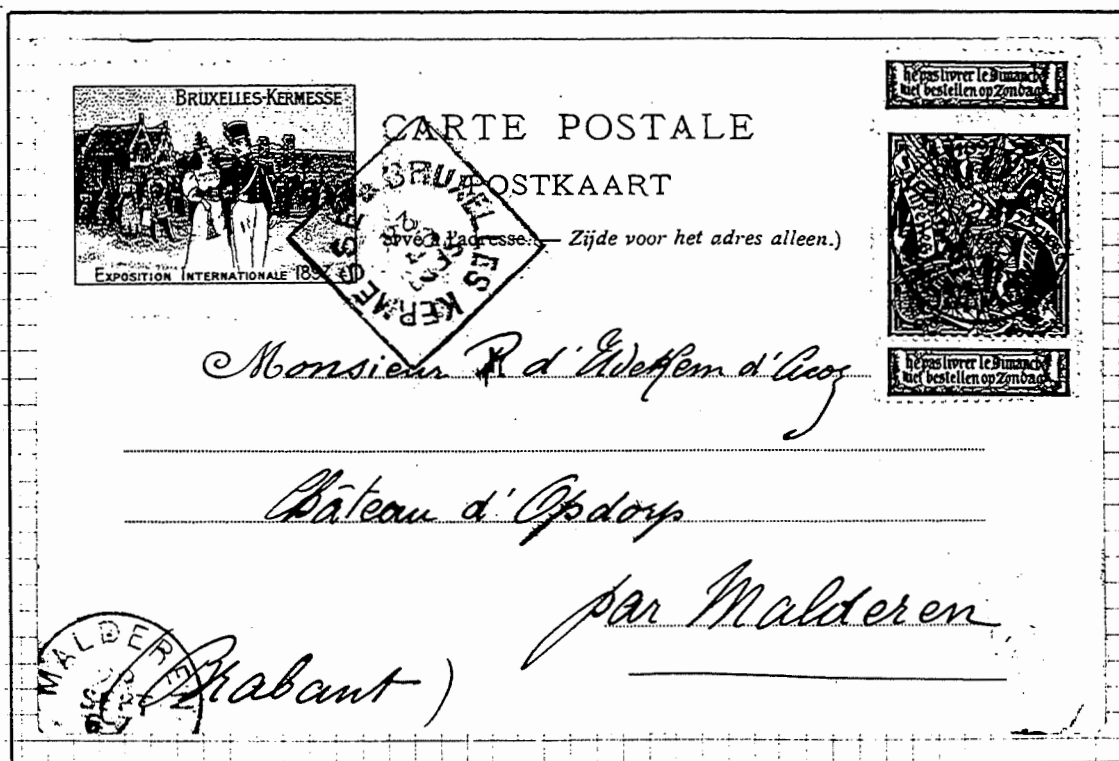 BRUXELLES-KERMESSE
EXPOSITION INTERNATIONALE 1897
CARTE POSTALE
POSTKAART
l'adresse. — Zijde voor het adres alleen.)
BRUXELLES KERMESSE
Ne pas livrer le Dimanche
Niet bestellen op Zondag
Ne pas livrer le Dimanche
Niet bestellen op Zondag
Monsieur R d'Udekem d'Acoz
Château d'Opdorp
par Malderen
(Brabant)
MALDEREN